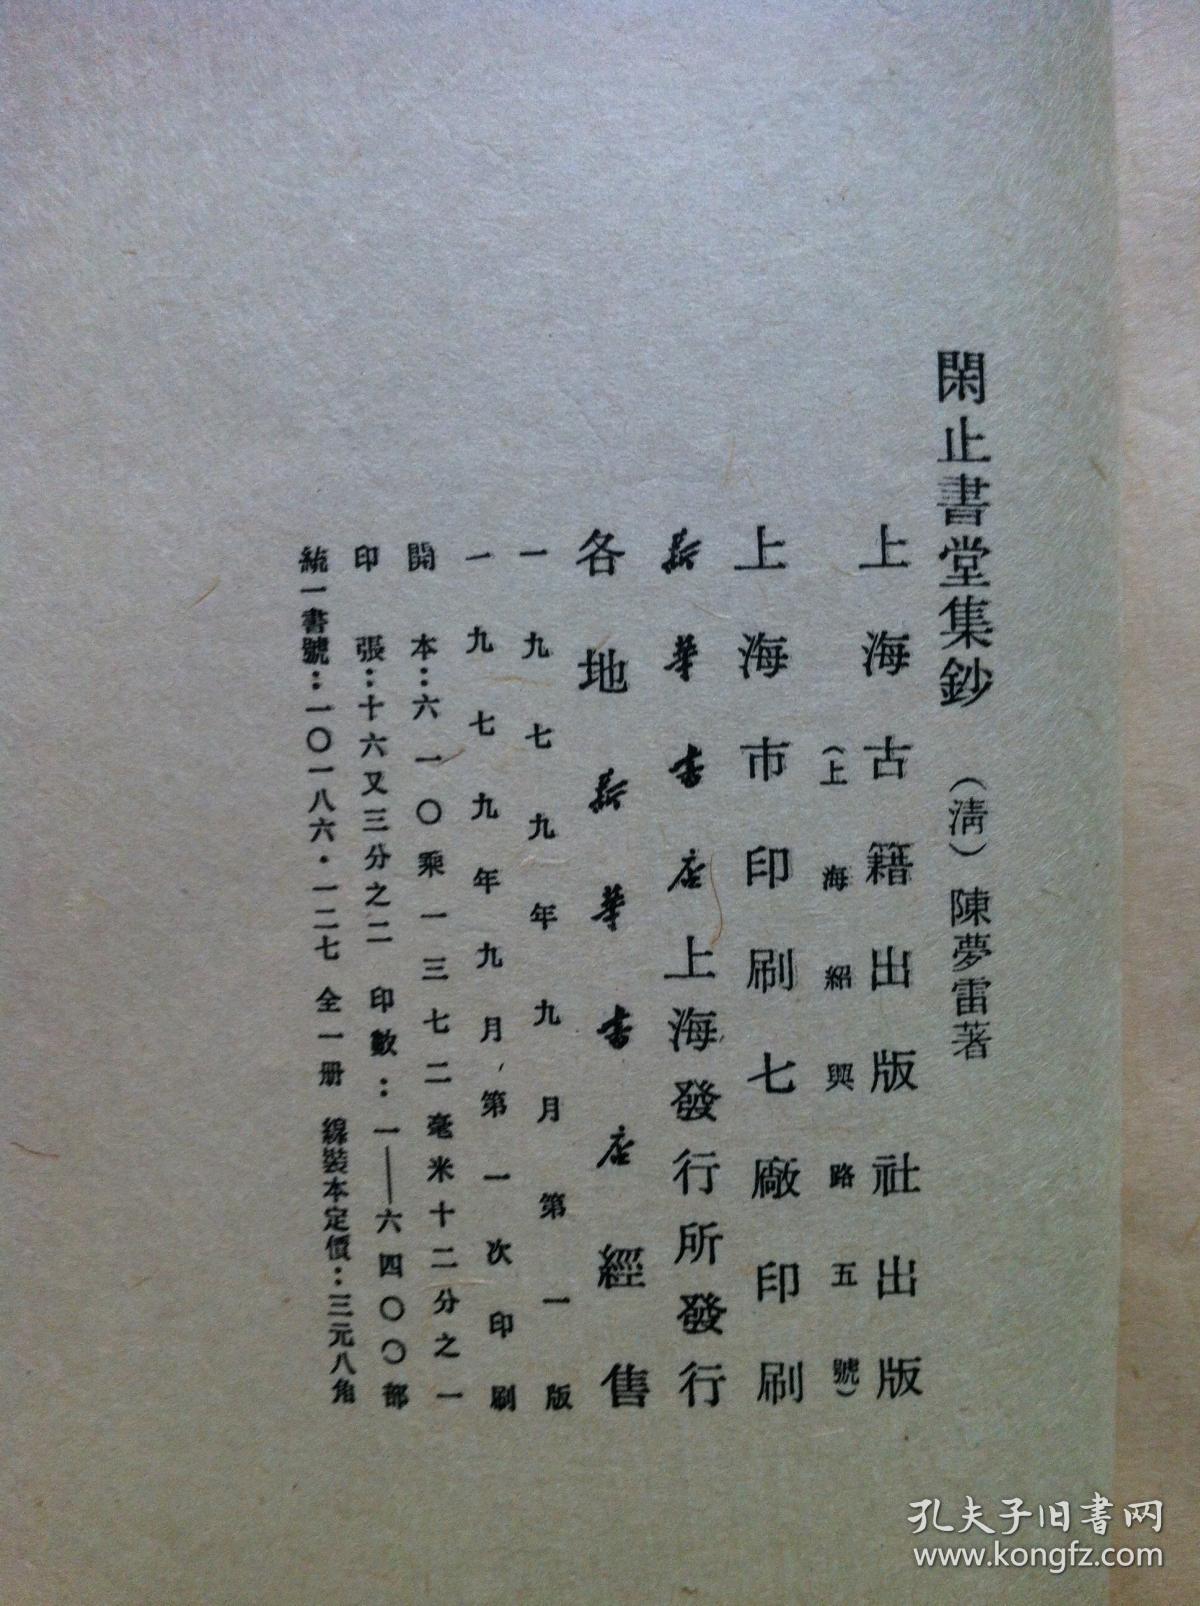 閑止書堂集鈔 (清)陳夢雷著
上海古籍出版社出版
(上海紹興路五號)
上海市印刷七廠印刷
新華書店上海發行所發行
各地新華書店經售
一九七九年九月第一版
一九七九年九月第一次印刷
開本：六一〇乘一三七二毫米十二分之一
印張：十六又三分之二 印數：一——六四〇〇部
統一書號：一〇一八六·一二七 全一冊 線裝本定價：三元八角
孔夫子旧书网
www.kongfz.com